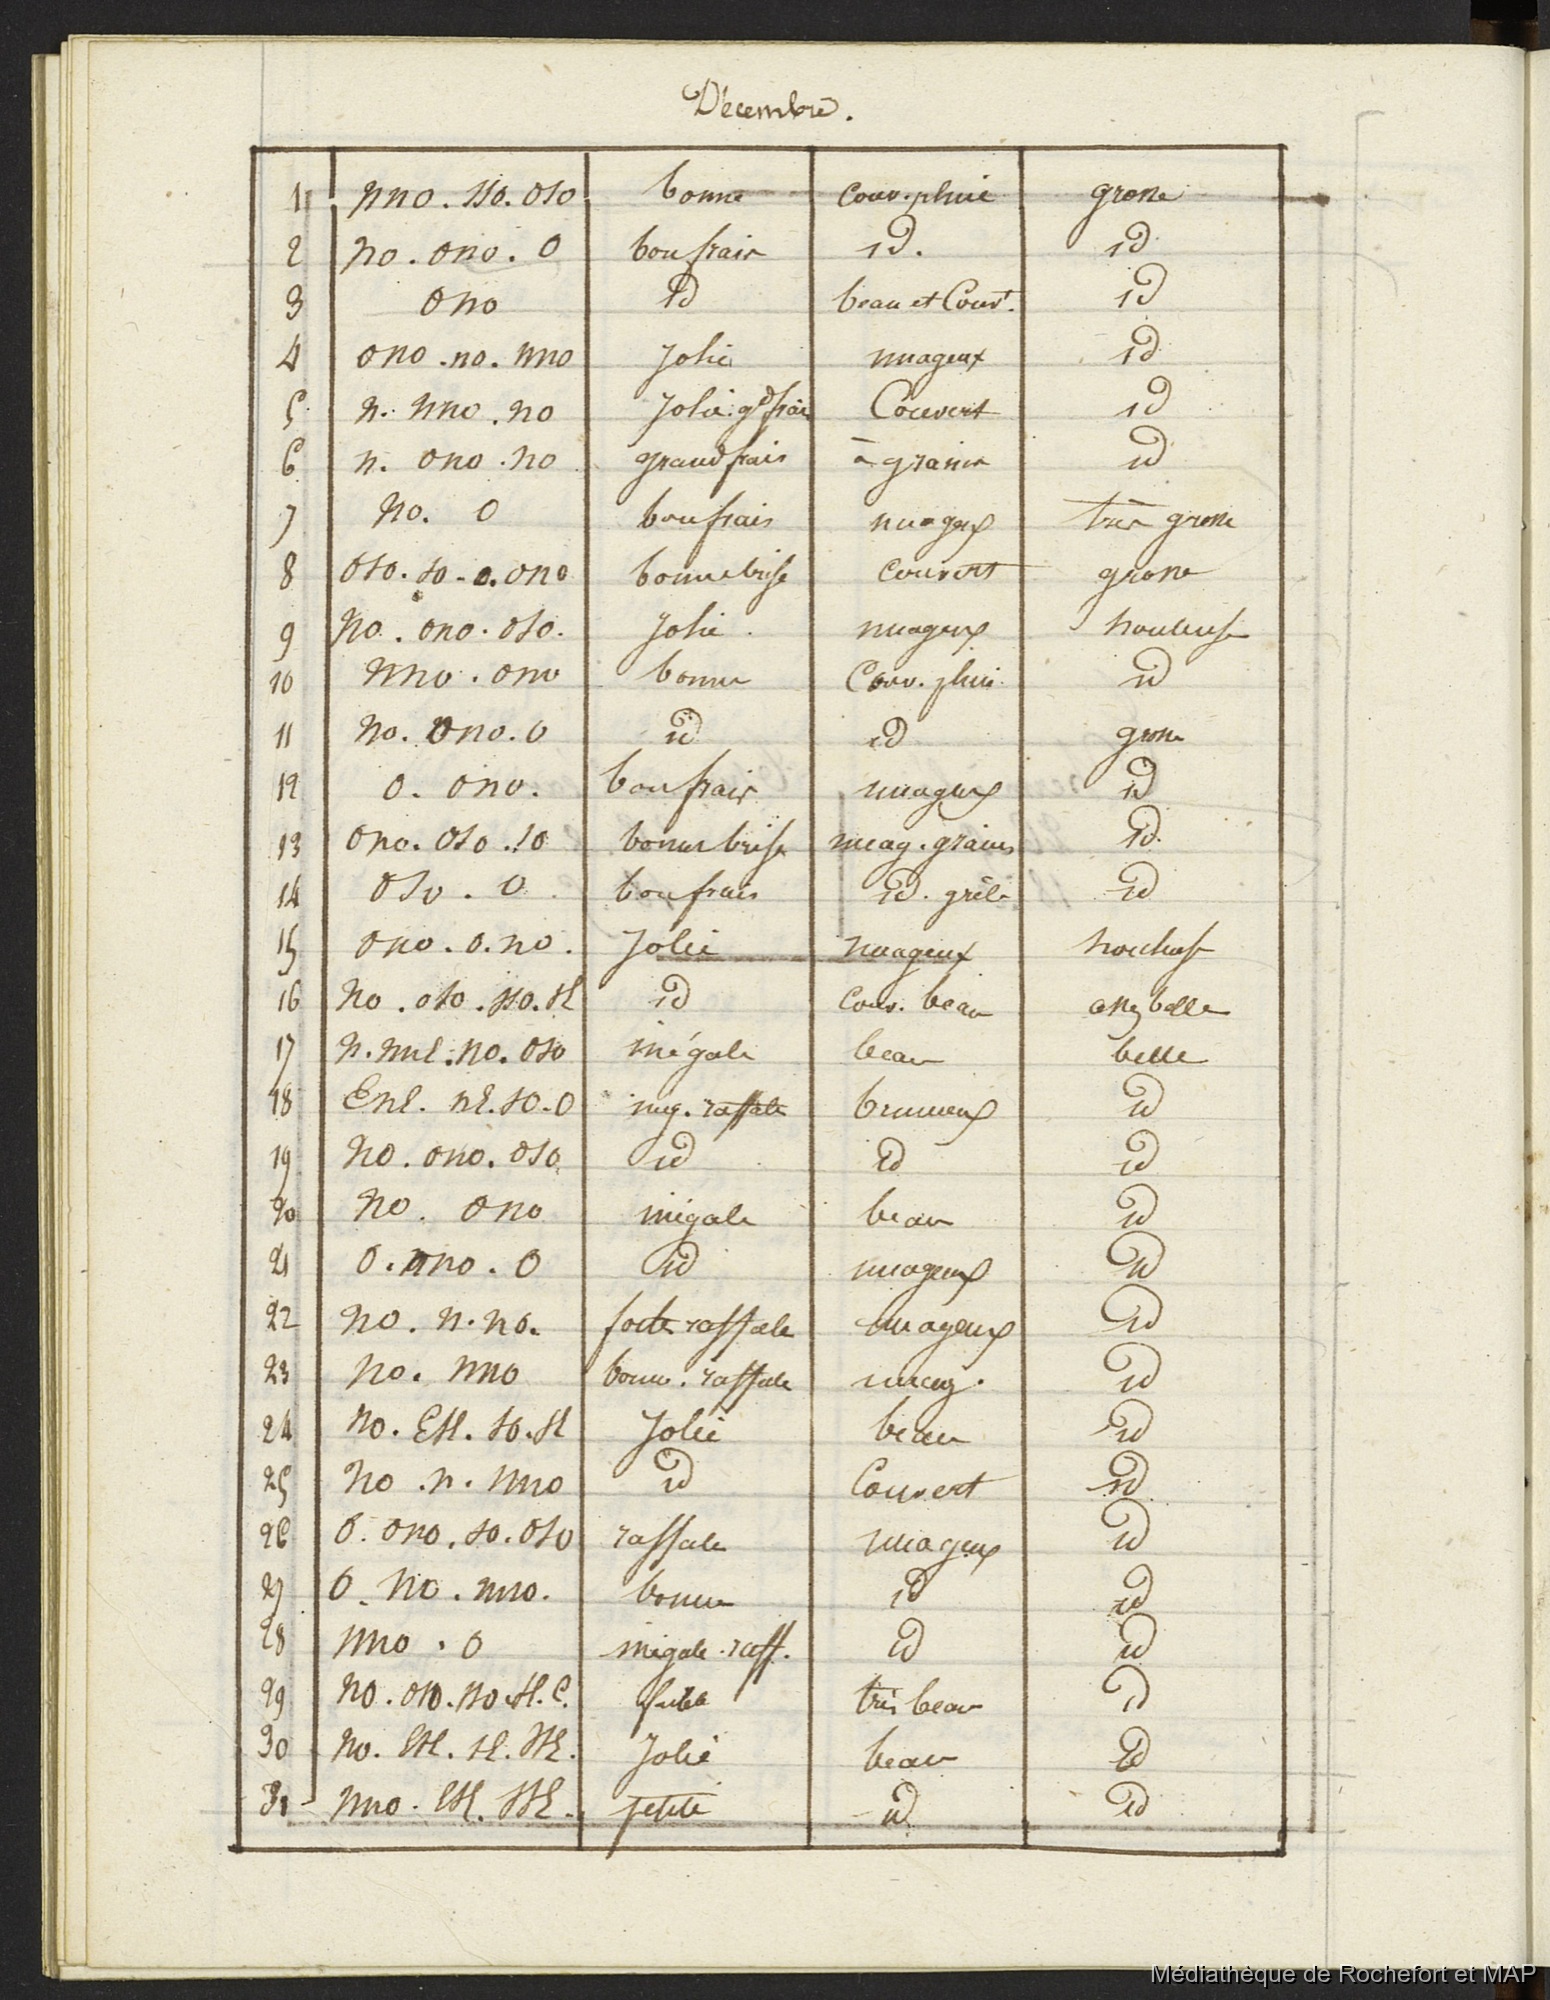 Décembre.
1 nno. sso. oso bonne couv. pluie grosse
2 no. ono. o bon frais id. id
3 ono id beau et Couvt. id
4 ono. no. nno Jolie nuageux id
5 n. nno. no Jolie. gd frais Couvert id
6 n. ono. no grand frais à grains id
7 no. o bon frais nuageux très grosse
8 oso. so. o. ono bonne brise couvert grosse
9 no. ono. oso. Jolie nuageux houleuse
10 nno. ono bonne Couv. pluie id
11 no. ono. o id id grosse
12 o. ono. bon frais nuageux id
13 ono. oso. so bonne brise nuag. grains id.
14 oso. o bon frais id. grêle id
15 ono. o. no. Jolie nuageux houleuse
16 no. oso. sso. sE id couv. beau assez belle
17 n. nnE. no. oso inégale beau belle
18 EnE. nE. so. o inég. raffale brumeux id
19 no. ono. oso id id id
20 no. ono inégale beau id
21 o. nno. o id nuageux id
22 no. n. no. forte raffale nuageux id
23 no. nno bonne. raffale nuag. id
24 no. EsE. so. sE Jolie beau id
25 no. n. nno id Couvert id
26 o. ono. so. oso raffale nuageux id
27 o. no. nno. bonne id id
28 nno. o inégale. raff. id id
29 no. no. sE. E. très beau id
30 no. EsE. sE. ssE. Jolie beau id
31 nno. EsE. ssE. petite id id
Médiathèque de Rochefort et MAP